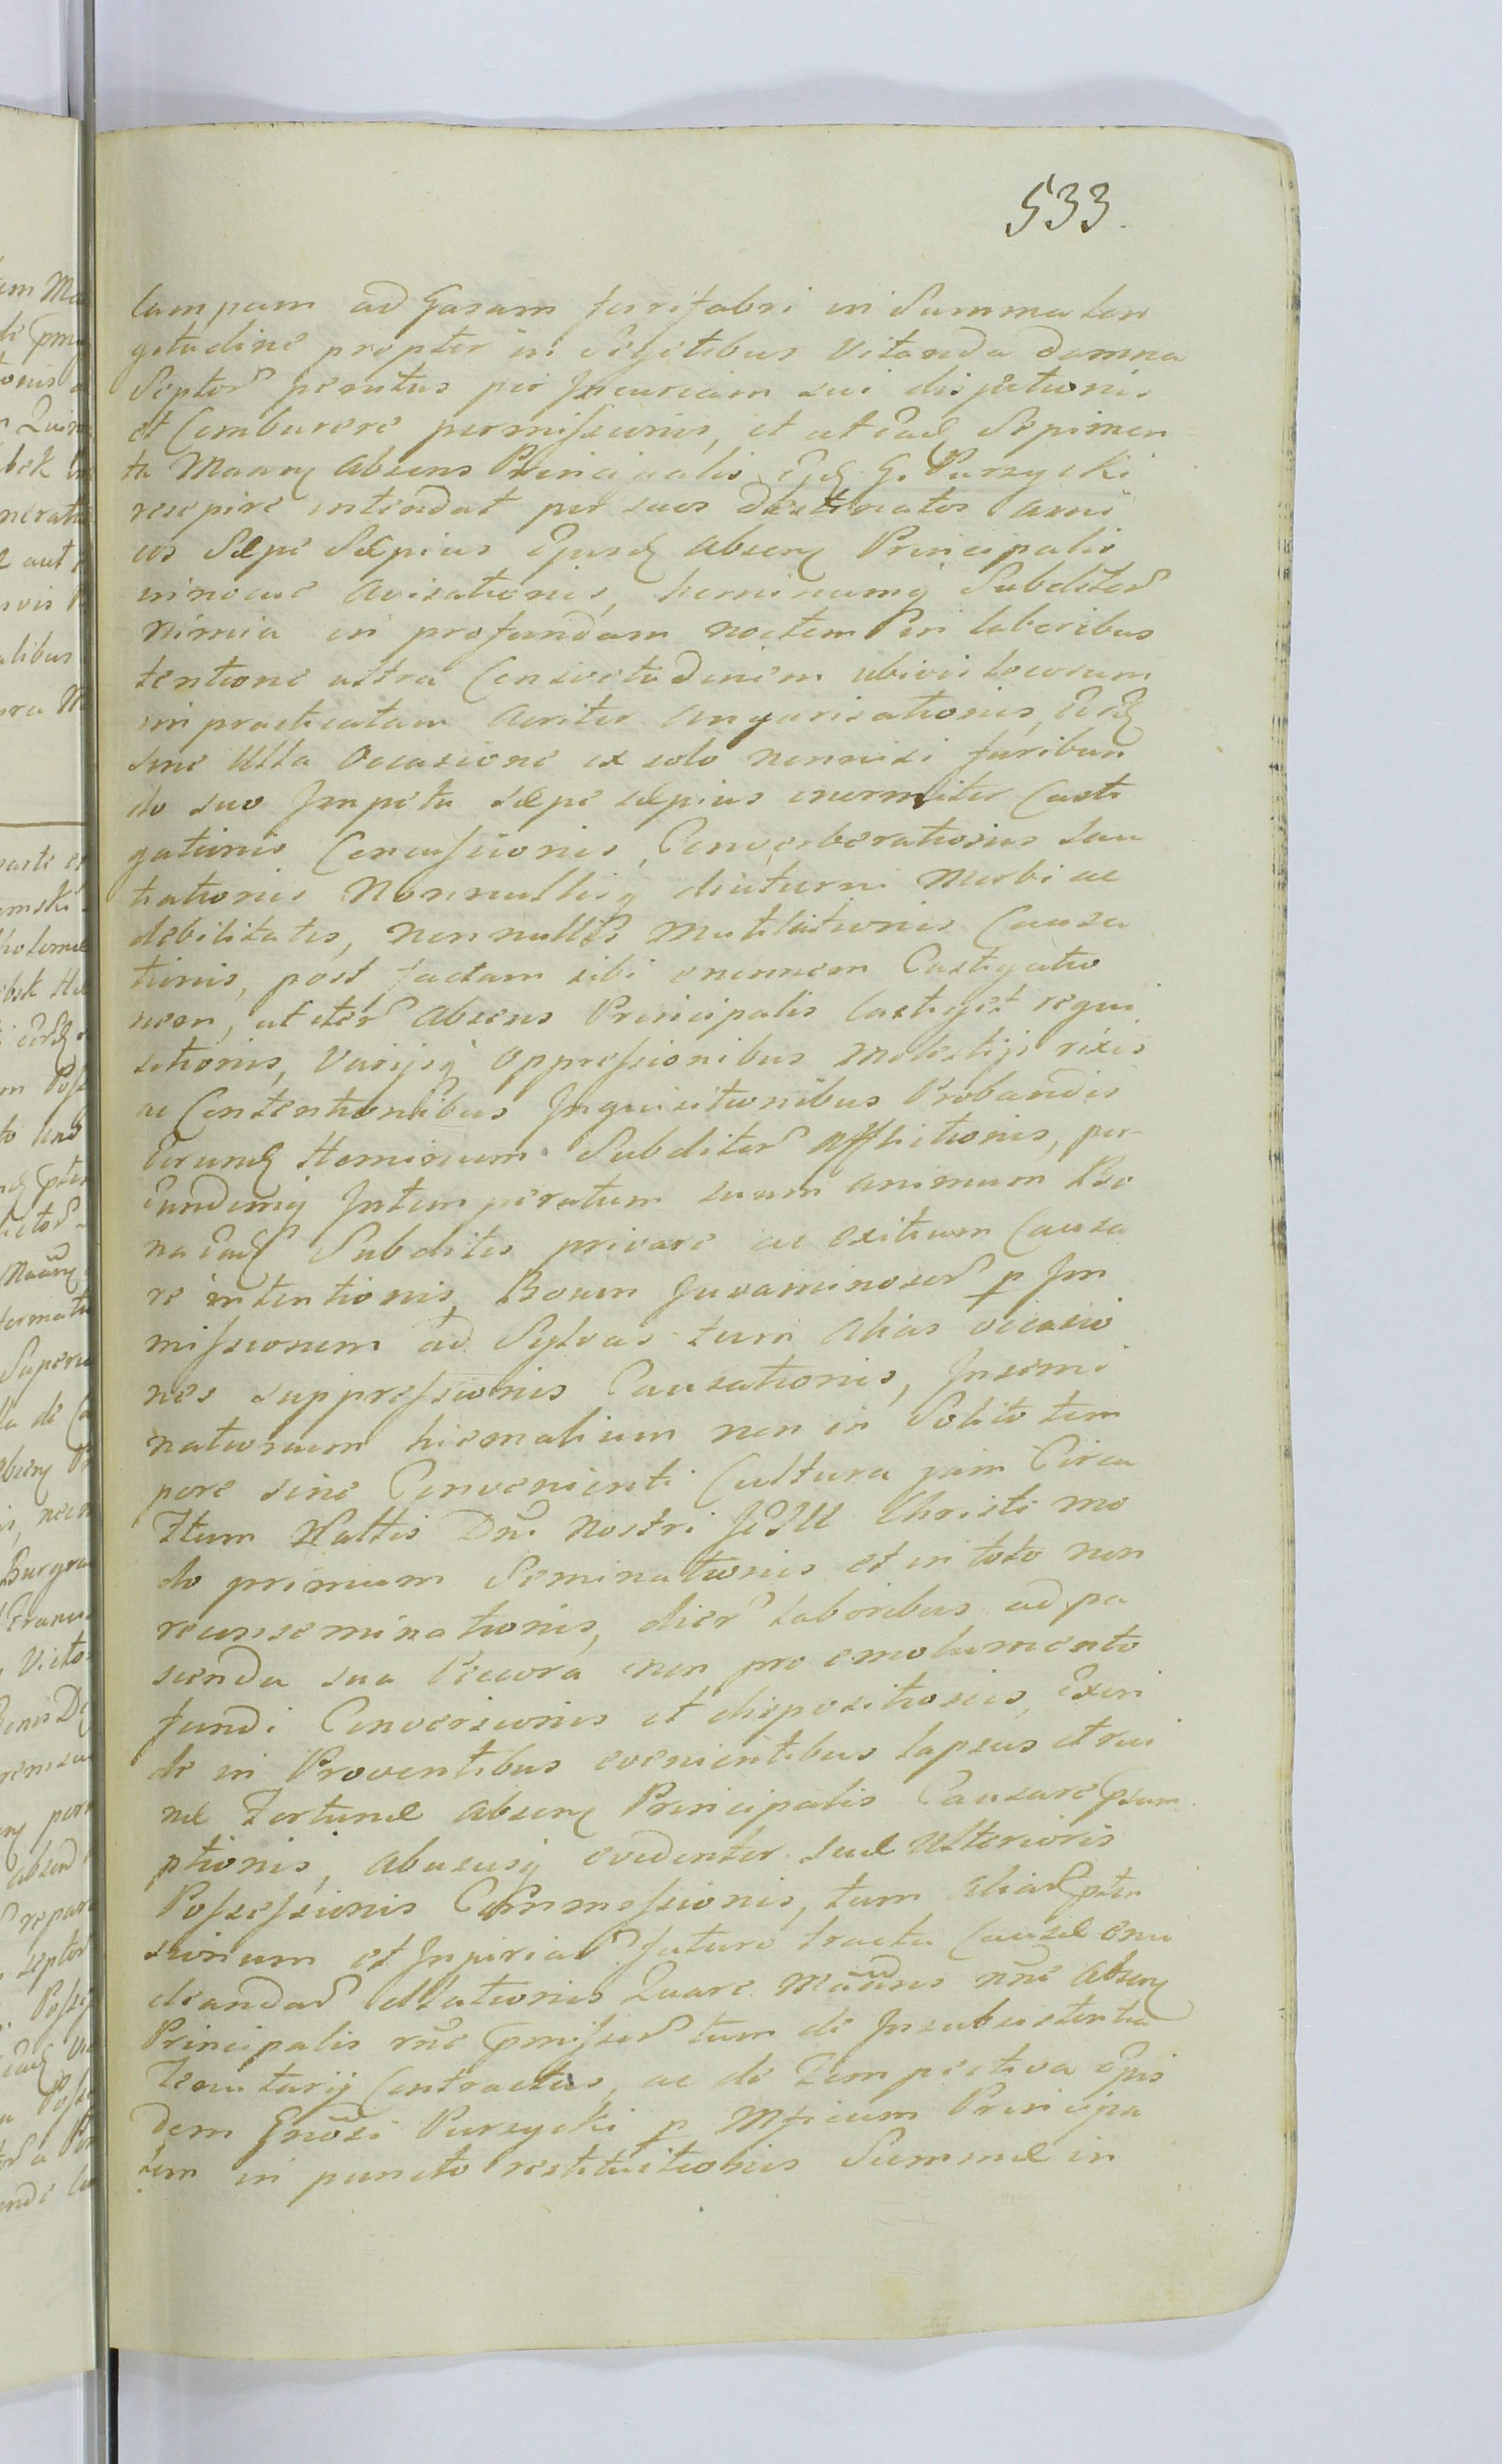 533.
campum ad Casam ferrifabri in Summa lon
gitudine propter in Segetibus vitanda damna
Septor penitus per Incuriam sui disjectionis
et Comburere permissionis, et ut ead Sepimen
ta Manq absens Principalis Ejd G. Purzycki
resepire intendat per suos destinatos ami
cos Sæpe Sæpius Ejusd absenq Principalis
avisationis, hominumq Subditor
nimia in profundam noctem in laboribus
tentione ultra Consvetudinem ubivis locorum
impracticatam acriter angarisationis, Eosd
sine Ulla occasione ex solo nonnisi furibun
do suo Impetu sæpe sæpius enormiter Casti
gationis Concussionis, Converberationis sau
tiationis Nonnullisq diuturni Morbi ac
debilitatis, nonnullis Mutilationis Causa
tionis, post factam sibi Castigatio
nem, ut iter absens Principalis Castiget requi
sitionis, Varijsq oppressionibus molestijs rixis
ac Contentionibus Inquisitionibus Probandis
Eorund Hominum Subditor afflictionis, per
Eundemq Intemperatum suum animum Bo
na Ead Subditis privare ac exitium Causa
re intentionis, Boum Juvaminosor p Im
missionem ad Sylvas tum alias occasio
nes suppressionis Causationis, Insemi
nationum hiemalium non in Solito tem
pore sine Convenienti Cultura jam Circa
ftum Nattis Dni Nostri JESU Christi mo
do primum Seminationis et in toto non
reinseminationis, dier laboribus ad pa
scenda sua Pecora non pro emolumento
fundi Conversionis et dispositionis, Exin
de in Proventibus evenientibus lapsus et rui
næ Fortunæ absenq Principalis Causare Psum
ptionis, abususq evidenter suæ Ulterioris
Possessionis Commissionis, tum aliar Pten
sionum et Injuriar futuro tractu Causæ enu
cleandar illationis Quare Mandns nne absenq
Principalis rne Pmissor tum de Insubsistentia
Tenutarij Contractus, ac de Tempestiva Ejus
dem Gnosi Purzycki p Mficum Principa
lem in puncto restituitionis Summæ in